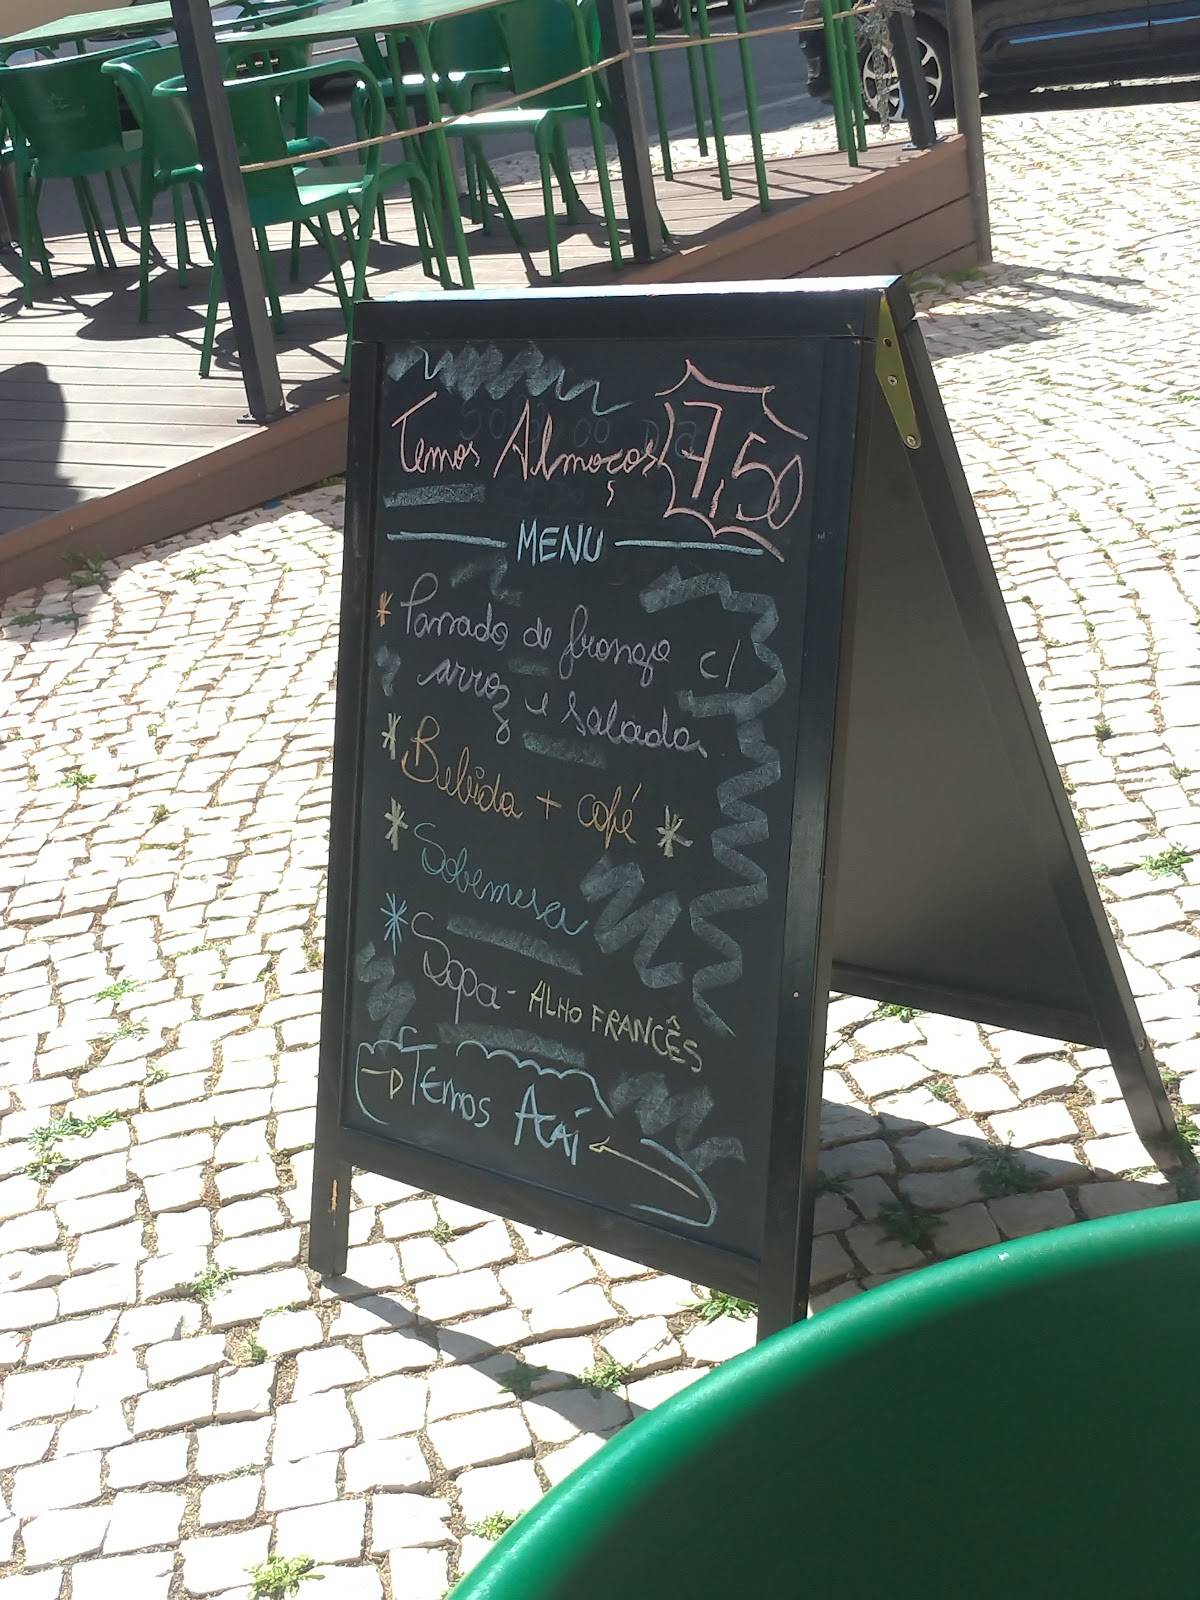 Temos Almoços 7,50
MENU
* Panado de frango c/
arroz e salada
* Bebida + café *
* Sobemesa
* Sopa - ALHO FRANCÊS
TEMOS AÇAÍ